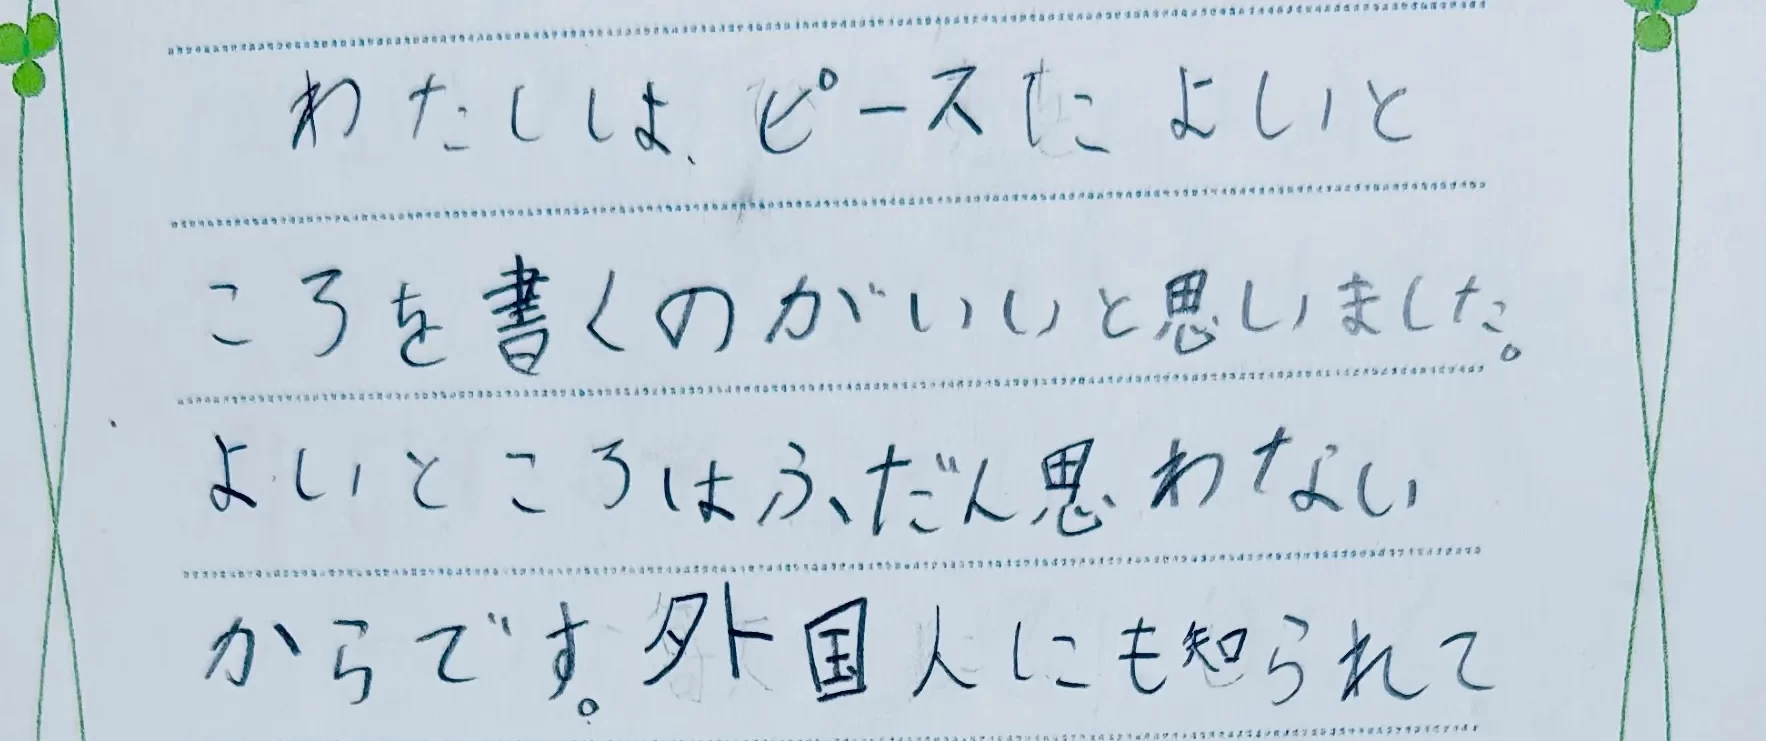 わたしは、ピースによいと
ころを書くのがいいと思いました。
よいところはふだん思わない
からです。外国人にも知られて